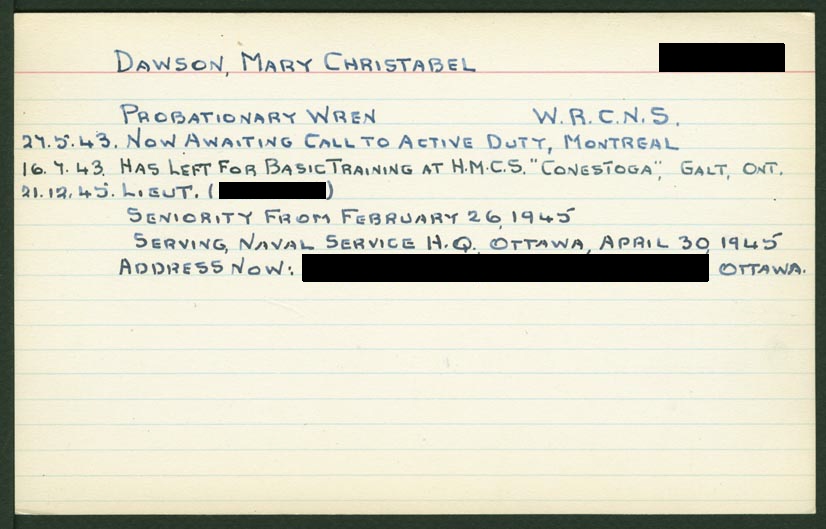 DAWSON, MARY CHRISTABEL
PROBATIONARY WREN W.R.C.N.S.
27.5.43. NOW AWAITING CALL TO ACTIVE DUTY, MONTREAL
16.7.43. HAS LEFT FOR BASIC TRAINING AT H.M.C.S. "CONESTOGA", GALT, ONT.
21.12.45. LIEUT. ( )
SENIORITY FROM FEBRUARY 26, 1945
SERVING, NAVAL SERVICE H.Q. OTTAWA, APRIL 30, 1945
ADDRESS NOW: OTTAWA.